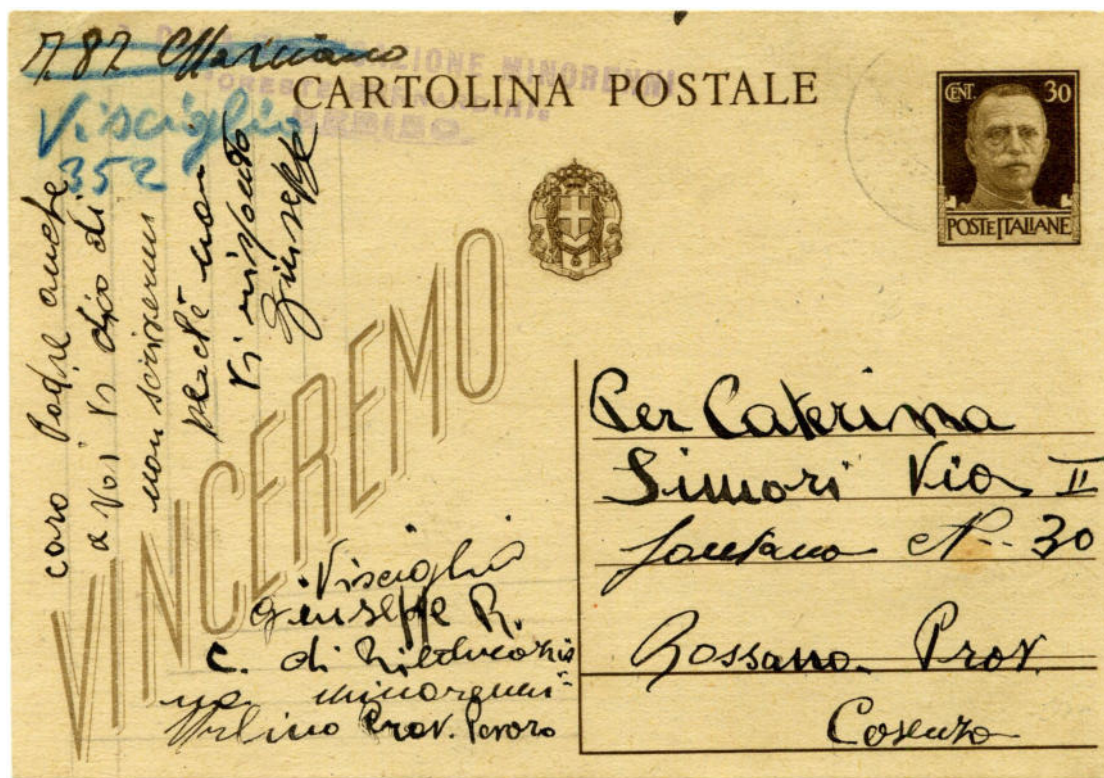 787 Marciano
CASA DI RIEDUCAZIONE MINORENNI
URBINO
CARTOLINA POSTALE
CENT. 30
POSTE ITALIANE
Visciglia
352
caro Padre anche
a voi vi dico di
non scrivermi
perché non
vi rispondo
Giuseppe
VINCEREMO
Visciglia
Giuseppe R.
C. di Rieducazis
na minorenni
Urbino Prov. Pesaro
Per Caterina
Simori Via II
fontana N. 30
Rossano Prov.
Cosenza